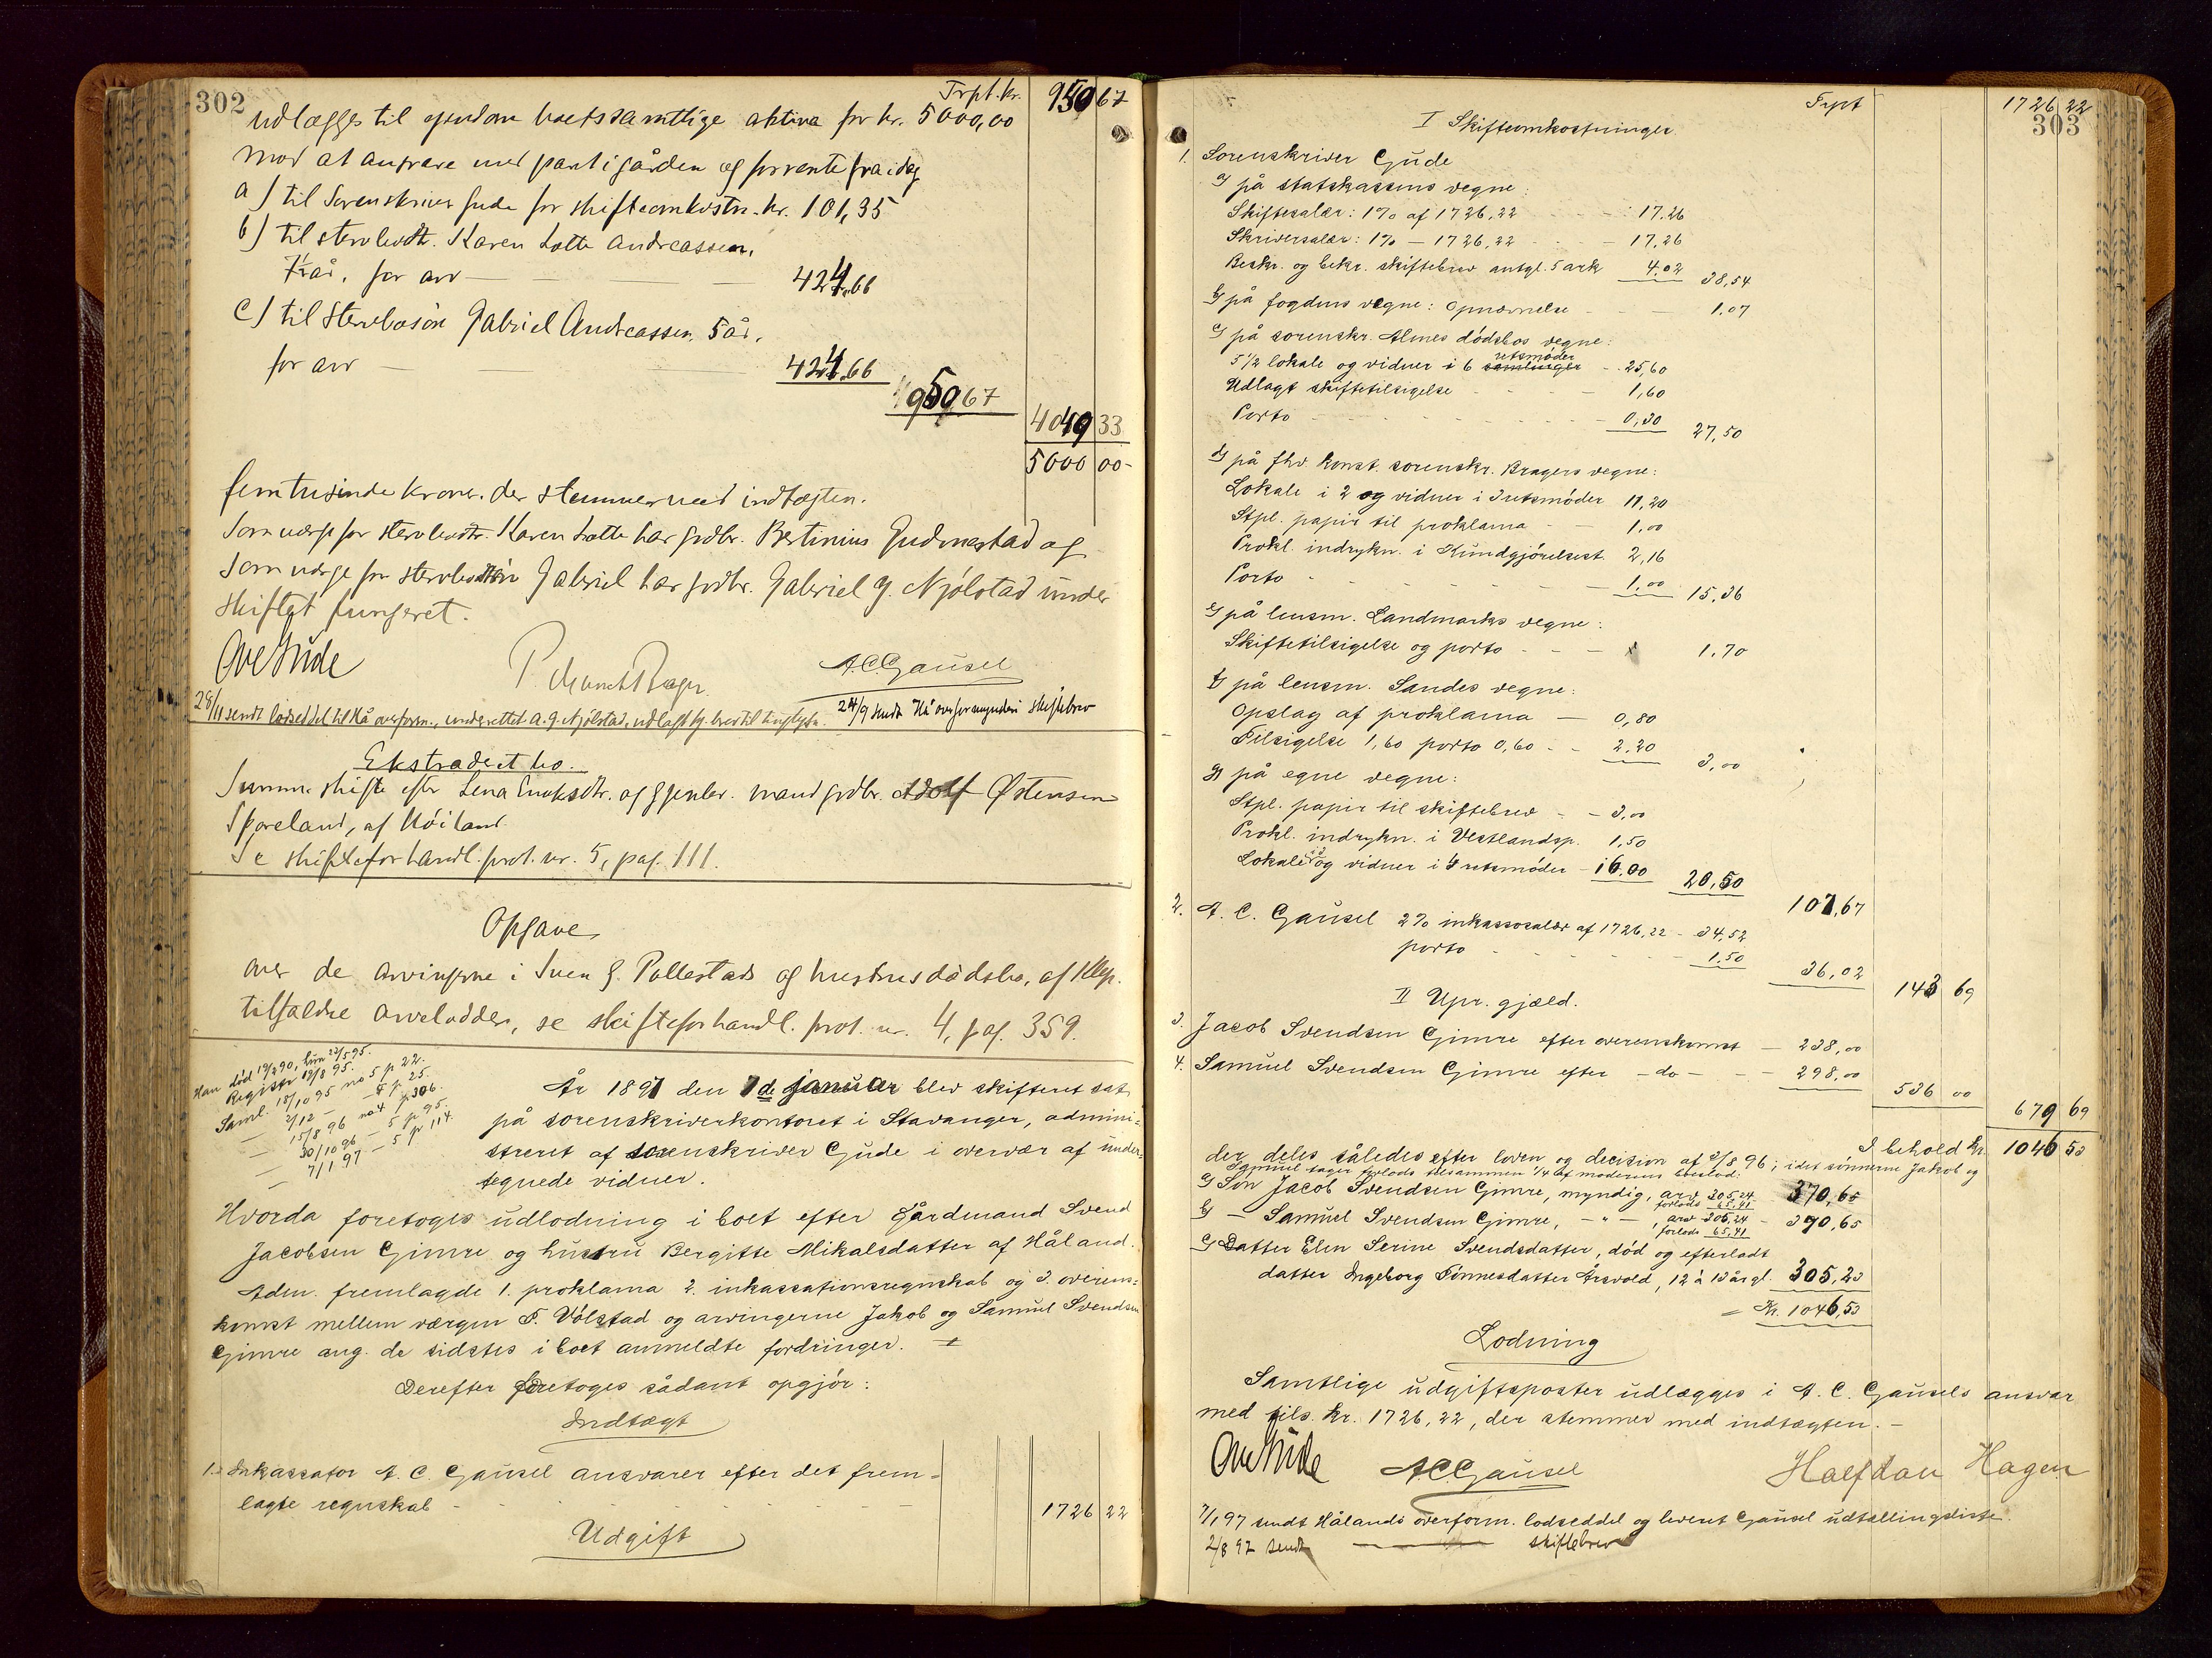 302
Trpt. kr. 950 67
udlægges til ejendom boets samtlige aktiva for kr. 5000,00
mod at ansvare med pant i gården og forrente fra idag
a) til Sorenskriver Gude for skifteomkostn. kr. 101,35
b) til stervbodtr. Karen Lotte Andreassen,
7½ år, for arv — 424,66
c) til stervbosøn Gabriel Andreassen, 5 år,
for arv — 424,66
950 67
4049 33
5000 00
femtusinde kroner. der stemmer med indtægten.
Som værge for stervbodtr. Karen Lotte har grdbr. Bertinius Gudmestad og
som værge for stervbosøn Gabriel har grdbr. Gabriel G. Njølstad under
skiftet fungeret.
Ove Gude P. Munch Brager A.C. Gausel
28/11 sendt lodseddel til Hå overform., underrettet A. G. Njølstad, udlagt og brev til tinglysn. 24/9 sendt Hå overformynderi skiftebrev
Ekstraderet bo.
Summ. skifte efter Lena Enoksdtr. og gjenlev. mand grdbr. Adolf Østensen
Skjæveland, af Høiland.
Se skifteforhandl. prot. nr. 5, pag. 111.
Opgave
over de arvingerne i Sven G. Pollestads og hustrus dødsbo, af Klep,
tilfaldne arvelodder, se skifteforhandl. prot. nr. 4, pag. 359.
Han død 19/2 90, hun 22/5 95.
Registr 19/8 95.
Saml. 18/10 95 no 5 p 22.
— 2/12 — - 5 p. 25.
— 15/8 96 no 4 p. 306.
— 30/10 96 - 5 p. 95.
— 7/1 97 - 5 p 114.
År 1897 den 7de januar blev skifteret sat
på sorenskriverkontoret i Stavanger, admini=
streret af sorenskriver Gude i overvær af under=
tegnede vidner.
Hvorda foretoges udlodning i boet efter gårdmand Svend
Jacobsen Gimre og hustru Bergitte Mikalsdatter af Håland.
Adm. fremlagde 1. proklama 2. inkassationsregnskab og 3. overens=
komst mellem værgen T. Vølstad og arvingerne Jakob og Samuel Svendsen
Gimre ang. de sidstes i boet anmeldte fordringer.
Derefter foretoges sådant opgjør:
Indtægt
1. Inkassator A. C. Gausel ansvarer efter det frem=
lagte regnskab - - - 1726 22
Udgift
303
Trpt 1726 22
I Skifteomkostninger
1. Sorenskriver Gude
a) på statskassens vegne:
Skiftesalær: 1% af 1726,22 - - - 17.26
Skriversalær: 1% — 1726,22 - - - 17,26
Beskr. og bekr. skiftebrev antgl. 5 ark 4.02 38,54
b) på fogdens vegne: opnævnelse - - 1.07
c) på sorenskr. Almes dødsbos vegne:
5 1/2 lokale og vidner i 6 samlinger retsmøder - 25,60
Udlagt skiftetilsigelse - - - 1,60
Porto - - - 0,30 27,50
d) på fhv. konst. sorenskr. Bragers vegne:
Lokale i 2 og vidner i 3 retsmøder 11,20
Stpl. papir til proklama - - 1,00
Prokl. indrykn. i Kundgjørelsest. 2,16
Porto - - - 1,00 15,36
e) på lensm. Landmarks vegne:
Skiftetilsigelse og porto - - - 1.70
f) på lensm. Sandes vegne:
Opslag af proklama — 0,80
Tilsigelse 1,60 porto 0,60 - - 2,20 3,00
g) på egne vegne:
Stpl. papir til skiftebrev - - 3,00
Prokl. indrykn. i Vestlandsp. 1,50
Lokale og vidner i 4 retsmøder - 16.00 20,50
107,67
2. A. C. Gausel 2% inkassosalær af 1726,22 - 34,52
porto - - - 1.50
36,02 143 69
II Upr. gjæld.
3. Jacob Svendsen Gimre efter overenskomst — 238,00
4. Samuel Svendsen Gimre efter — do — - - 298,00
536 00
679 69
I behold kr. 1046 53
der deles således efter loven og decision af 3/8 96; idet sønnerne Jakob og
Samuel tager forlods tilsammen 1/4 af moderens boslod:
a) Søn Jacob Svendsen Gimre, myndig, arv 305,24 forlods 65,41 370,65
b) — Samuel Svendsen Gimre, — " —, arv 305,24 forlods 65,41 - 370,65
c) Datter Elen Serine Svendsdatter, død og efterladt
datter Ingeborg Tønnesdatter Årsvold, 12 à 13 år gl. 305,23
= Kr. 1046,53
Lodning
Samtlige udgiftsposter udlægges i A. C. Gausels ansvar
med tils. kr. 1726,22, der stemmer med indtægten. —
Ove Gude A.C. Gausel Halfdan Hagen
7/1 97 sendt Hålands overform. lodseddel og leveret Gausel udtællingsliste.
2/8 97 sendt — " — skiftebrev